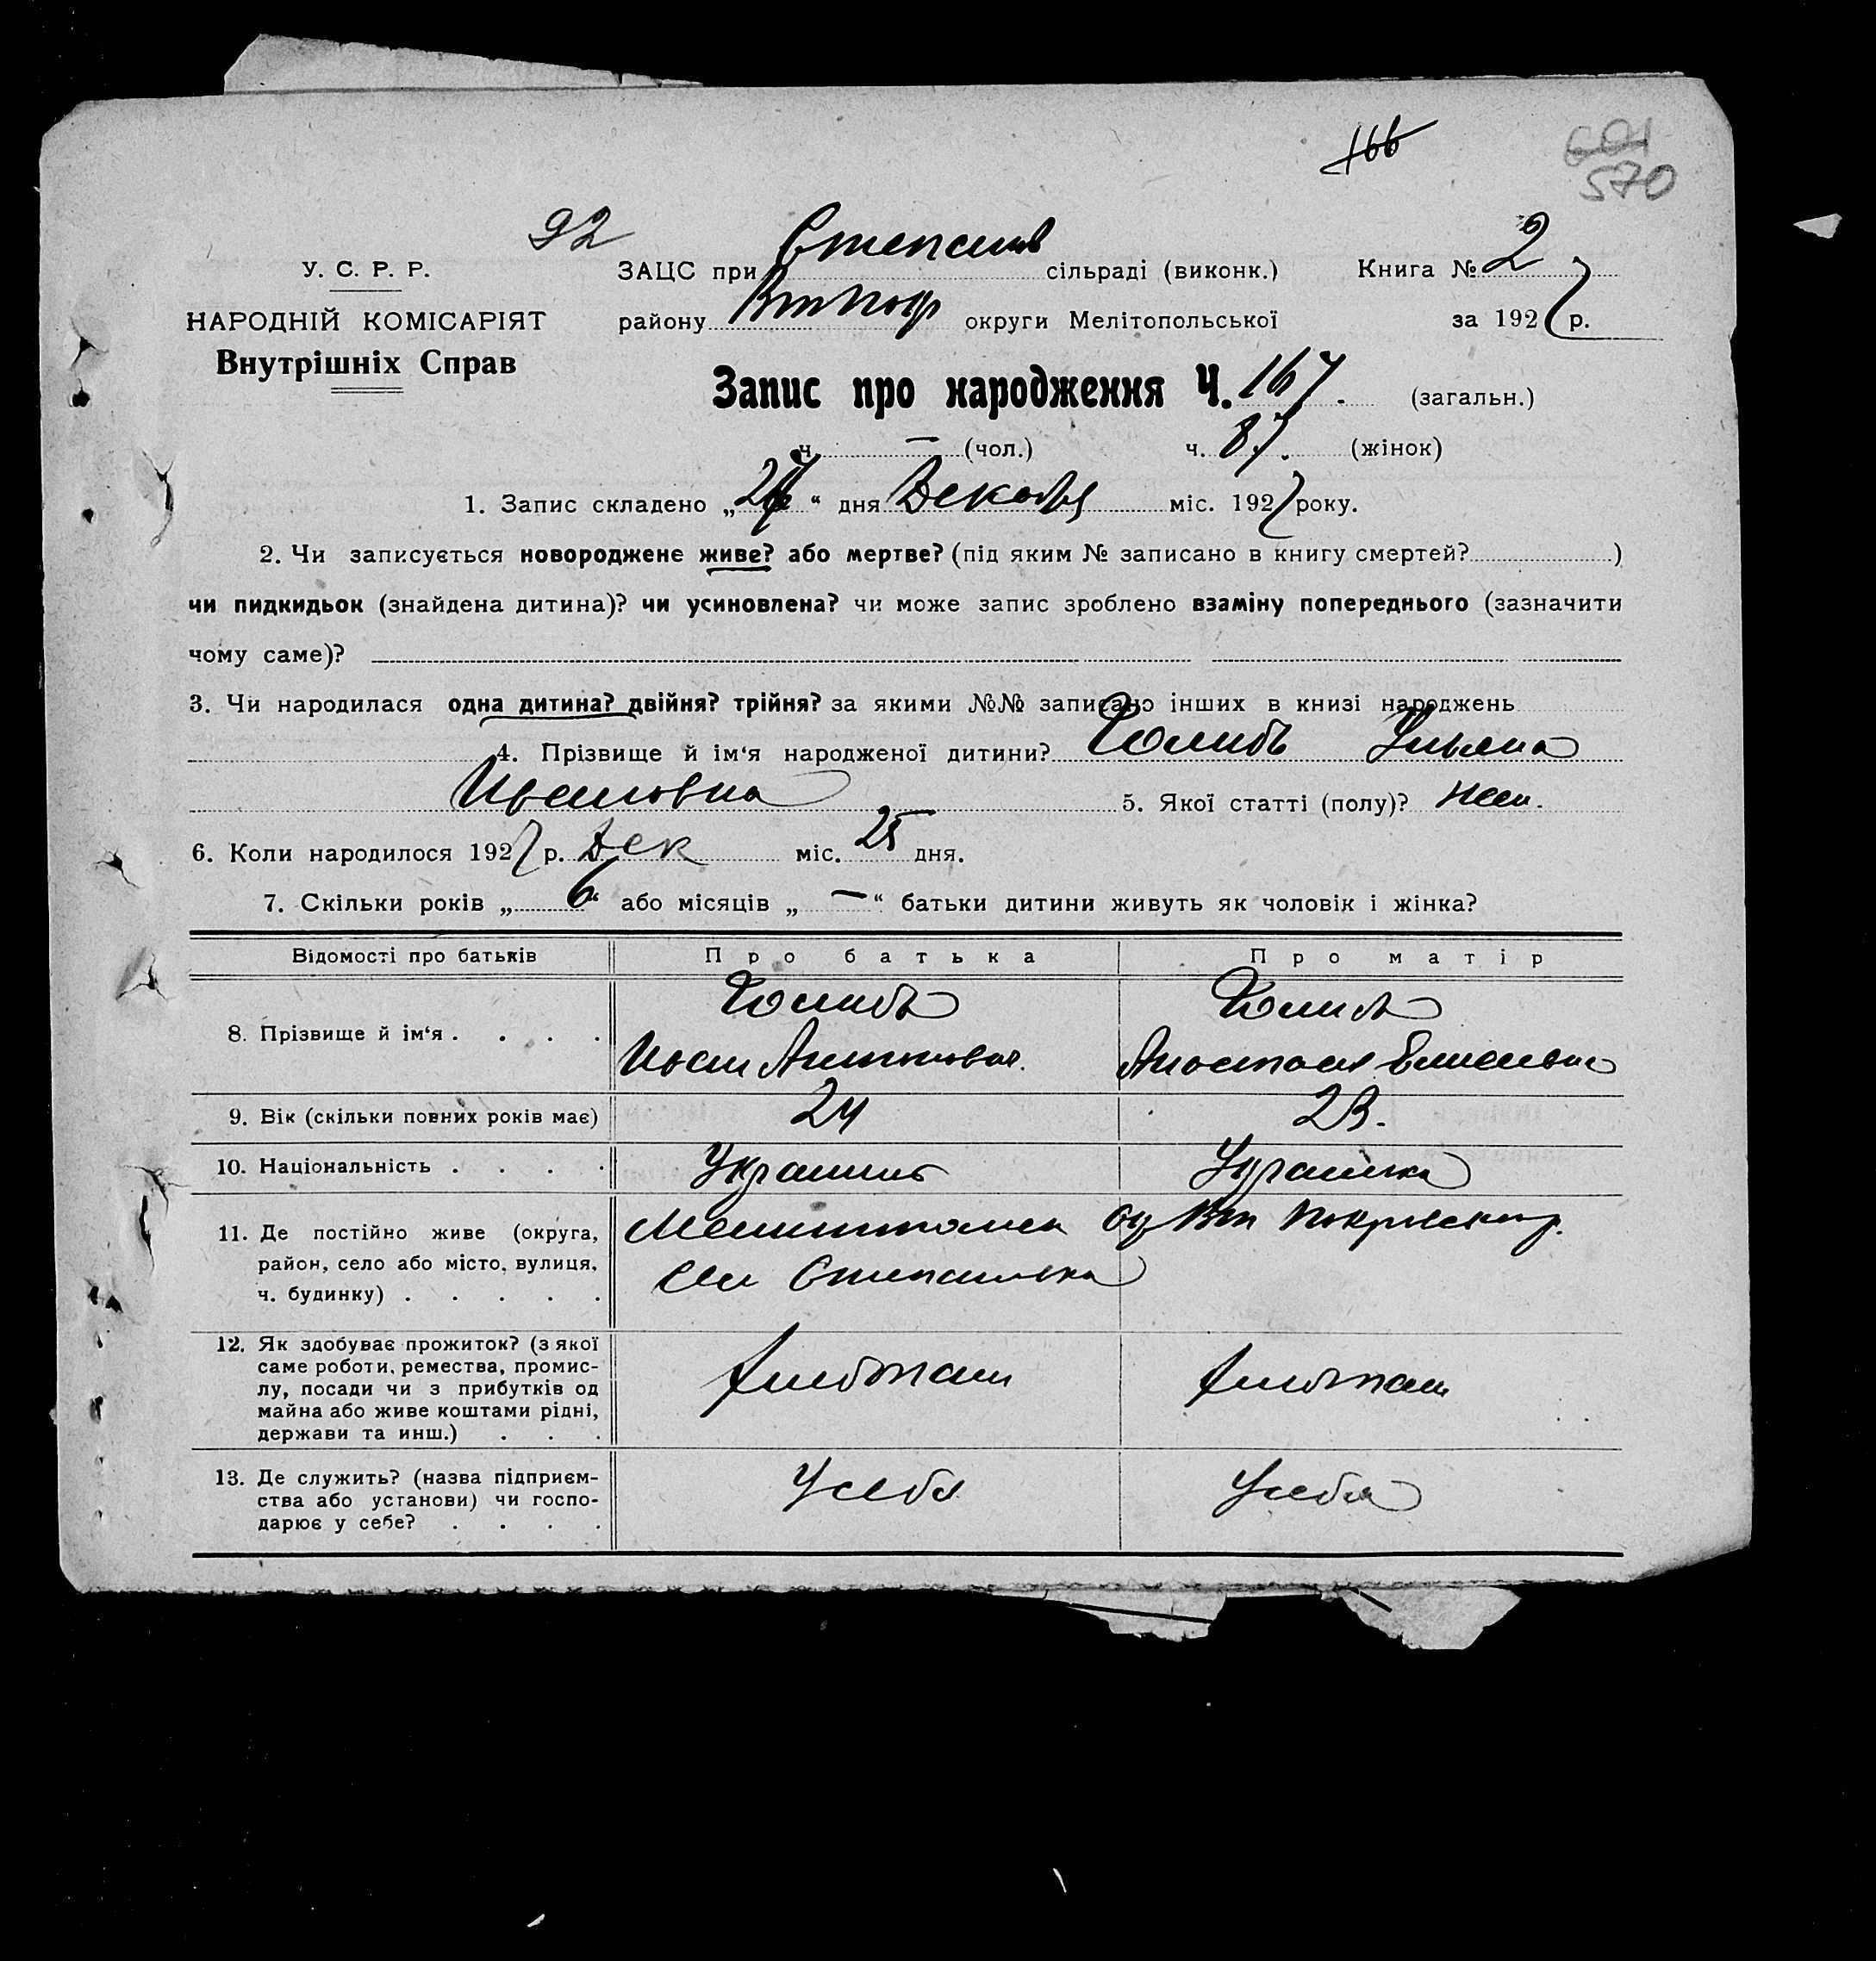 166
601
570
92
У. С. Р. Р.
НАРОДНІЙ КОМІСАРІЯТ
Внутрішніх Справ
ЗАЦС при Степанів сільраді (виконк.) Книга № 2
району Вт Покр округи Мелітопольської за 1927 р.
Запис про народження Ч. 167. (загальн.)
ч. — (чол.) ч. 87. (жінок)
1. Запис складено „ “ дня Декабря міс. 1927 року.
2. Чи записується новороджене живе? або мертве? (під яким № записано в книгу смертей? )
чи пидкидьок (знайдена дитина)? чи усиновлена? чи може запис зроблено взаміну попереднього (зазначити
чому саме)?
3. Чи народилася одна дитина? двійня? трійня? за якими №№ записано інших в книзі народжень
4. Прізвище й ім‘я народженої дитини? Ульяна
Ивановна 5. Якої статті (полу)? жен.
6. Коли народилося 1927 р. Дек міс. 25 дня.
7. Скільки років „ 6 “ або місяців „ — “ батьки дитини живуть як чоловік і жінка?
Відомості про батьків Про батька Про матір
8. Прізвище й ім‘я . . . .
Иван Анастасия Елисеевна
9. Вік (скільки повних років має) 24 23.
10. Національність . . . . Украинец Украинка
11. Де постійно живе (округа, Мелитополск Ок Вт Покровск р.
район, село або місто, вулиця, Сел Степановка
ч. будинку) . . . . .
12. Як здобуває прожиток? (з якої
саме роботи, ремества, промис-
лу, посади чи з прибутків од Хлебопаш Хлебопаш
майна або живе коштами рідні,
держави та инш.) . . .
13. Де служить? (назва підприєм- У себя У себя
ства або установи) чи госпо-
дарює у себе? . . . .